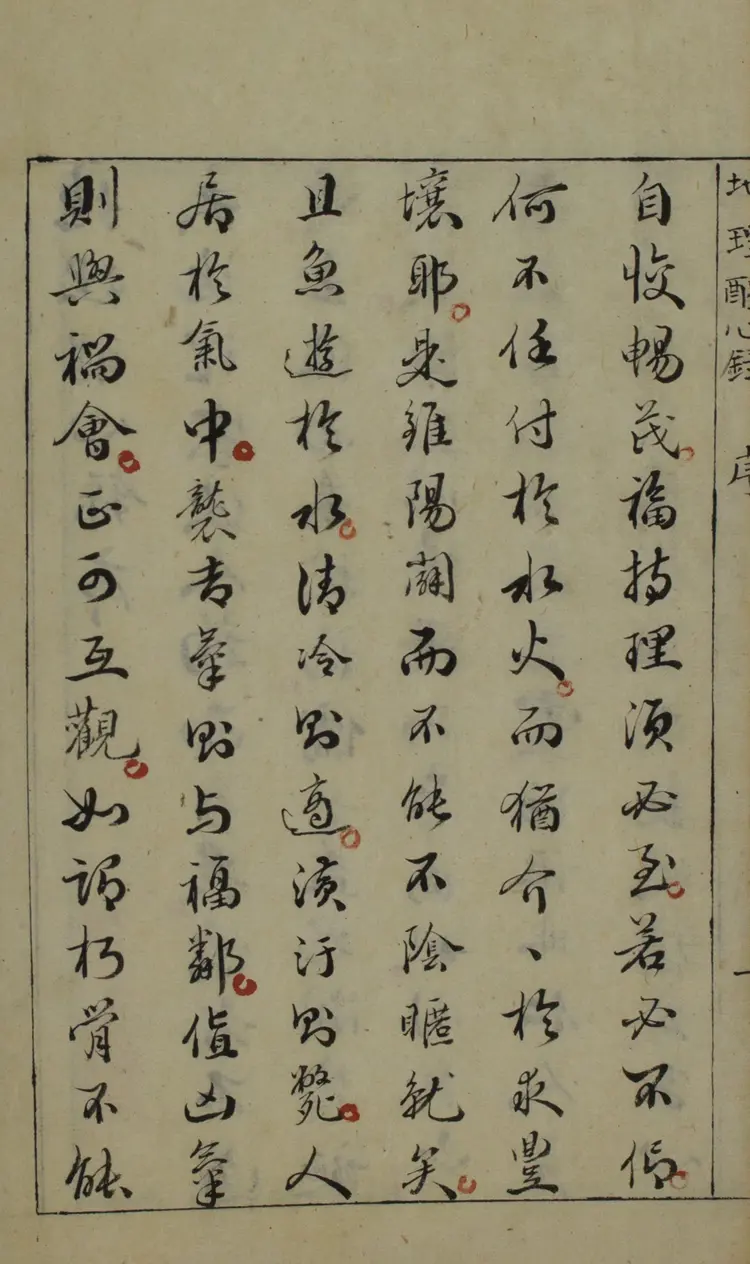 地理醒心錄 序 一
自悛暢茂福持理須必至若必不信
何不任付於水火而猶介、於求豐
壤耶是雖陽闢而不能不陰暱就矣
且魚遊於水清冷則適潢汙則斃人
居於氣中襲吉氣則与福鄰值凶氣
則與禍會正可互觀如謂朽骨不能